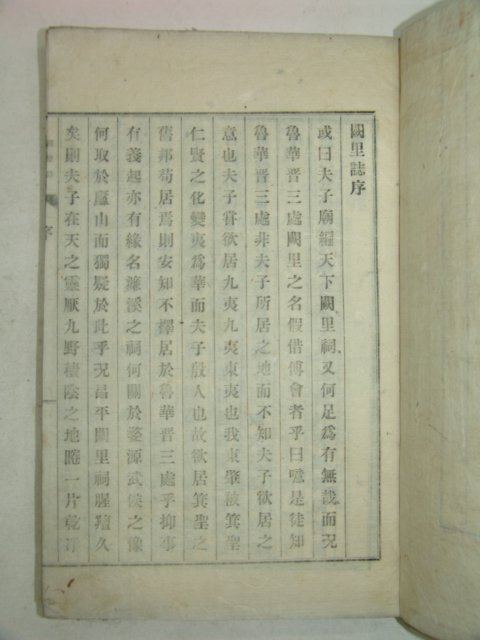 闕里誌序
或曰夫子廟遍天下闕里祠又何足爲有無哉而況
魯華晋三處闕里之名假借傅會者乎曰噫是徒知
魯華晋三處非夫子所居之地而不知夫子欲居之
意也夫子嘗欲居九夷九夷東夷也我東肇被箕聖
仁賢之化變夷爲華而夫子殷人也故欲居箕聖之
舊邦苟居焉則安知不擇居於魯華晋三處乎抑事
有義起亦有緣名濂溪之祠何關於婺源武侯之像
何取於廬山而獨疑於此乎況昌平闕里祠腥羶久
矣則夫子在天之靈厭九野積陰之地睠一片乾淨
序